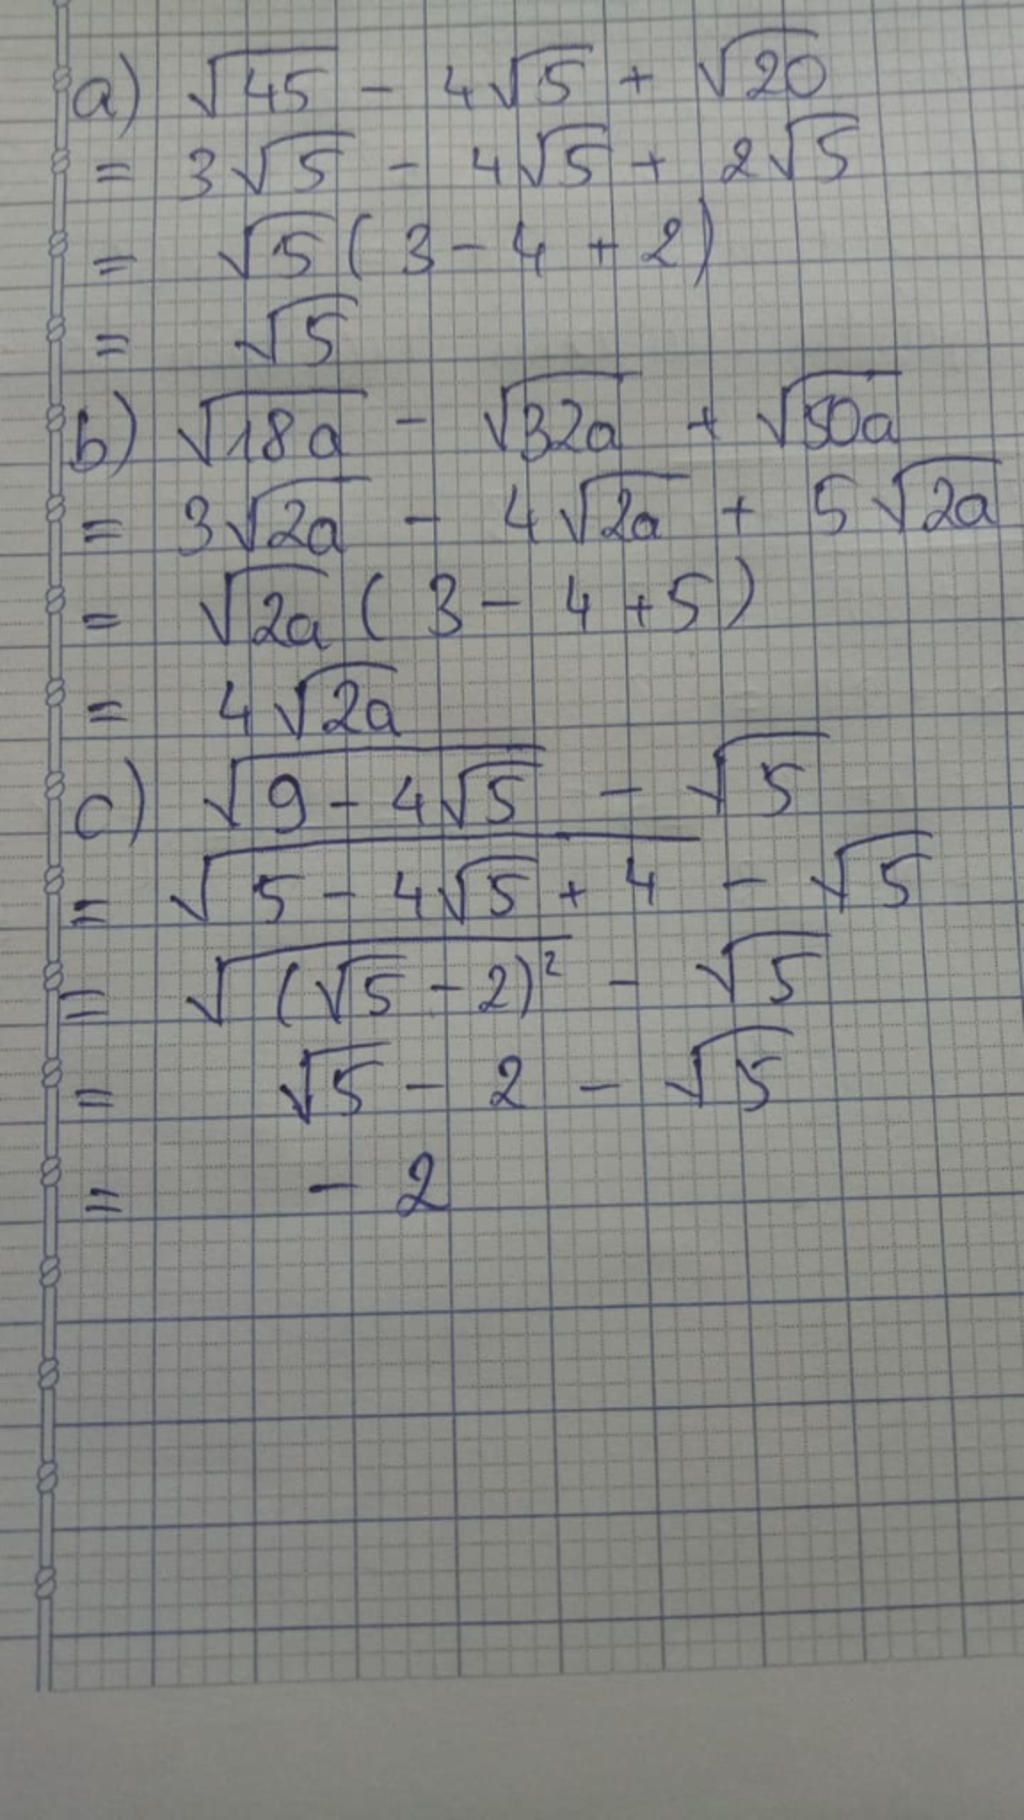 a) √45 - 4√5 + √20
= 3√5 - 4√5 + 2√5
= √5 ( 3 - 4 + 2)
= √5
b) √18a - √32a + √50a
= 3√2a - 4√2a + 5√2a
= √2a ( 3 - 4 + 5)
= 4√2a
c) √(9 - 4√5) - √5
= √(5 - 4√5 + 4) - √5
= √((√5 - 2)²) - √5
= √5 - 2 - √5
= - 2